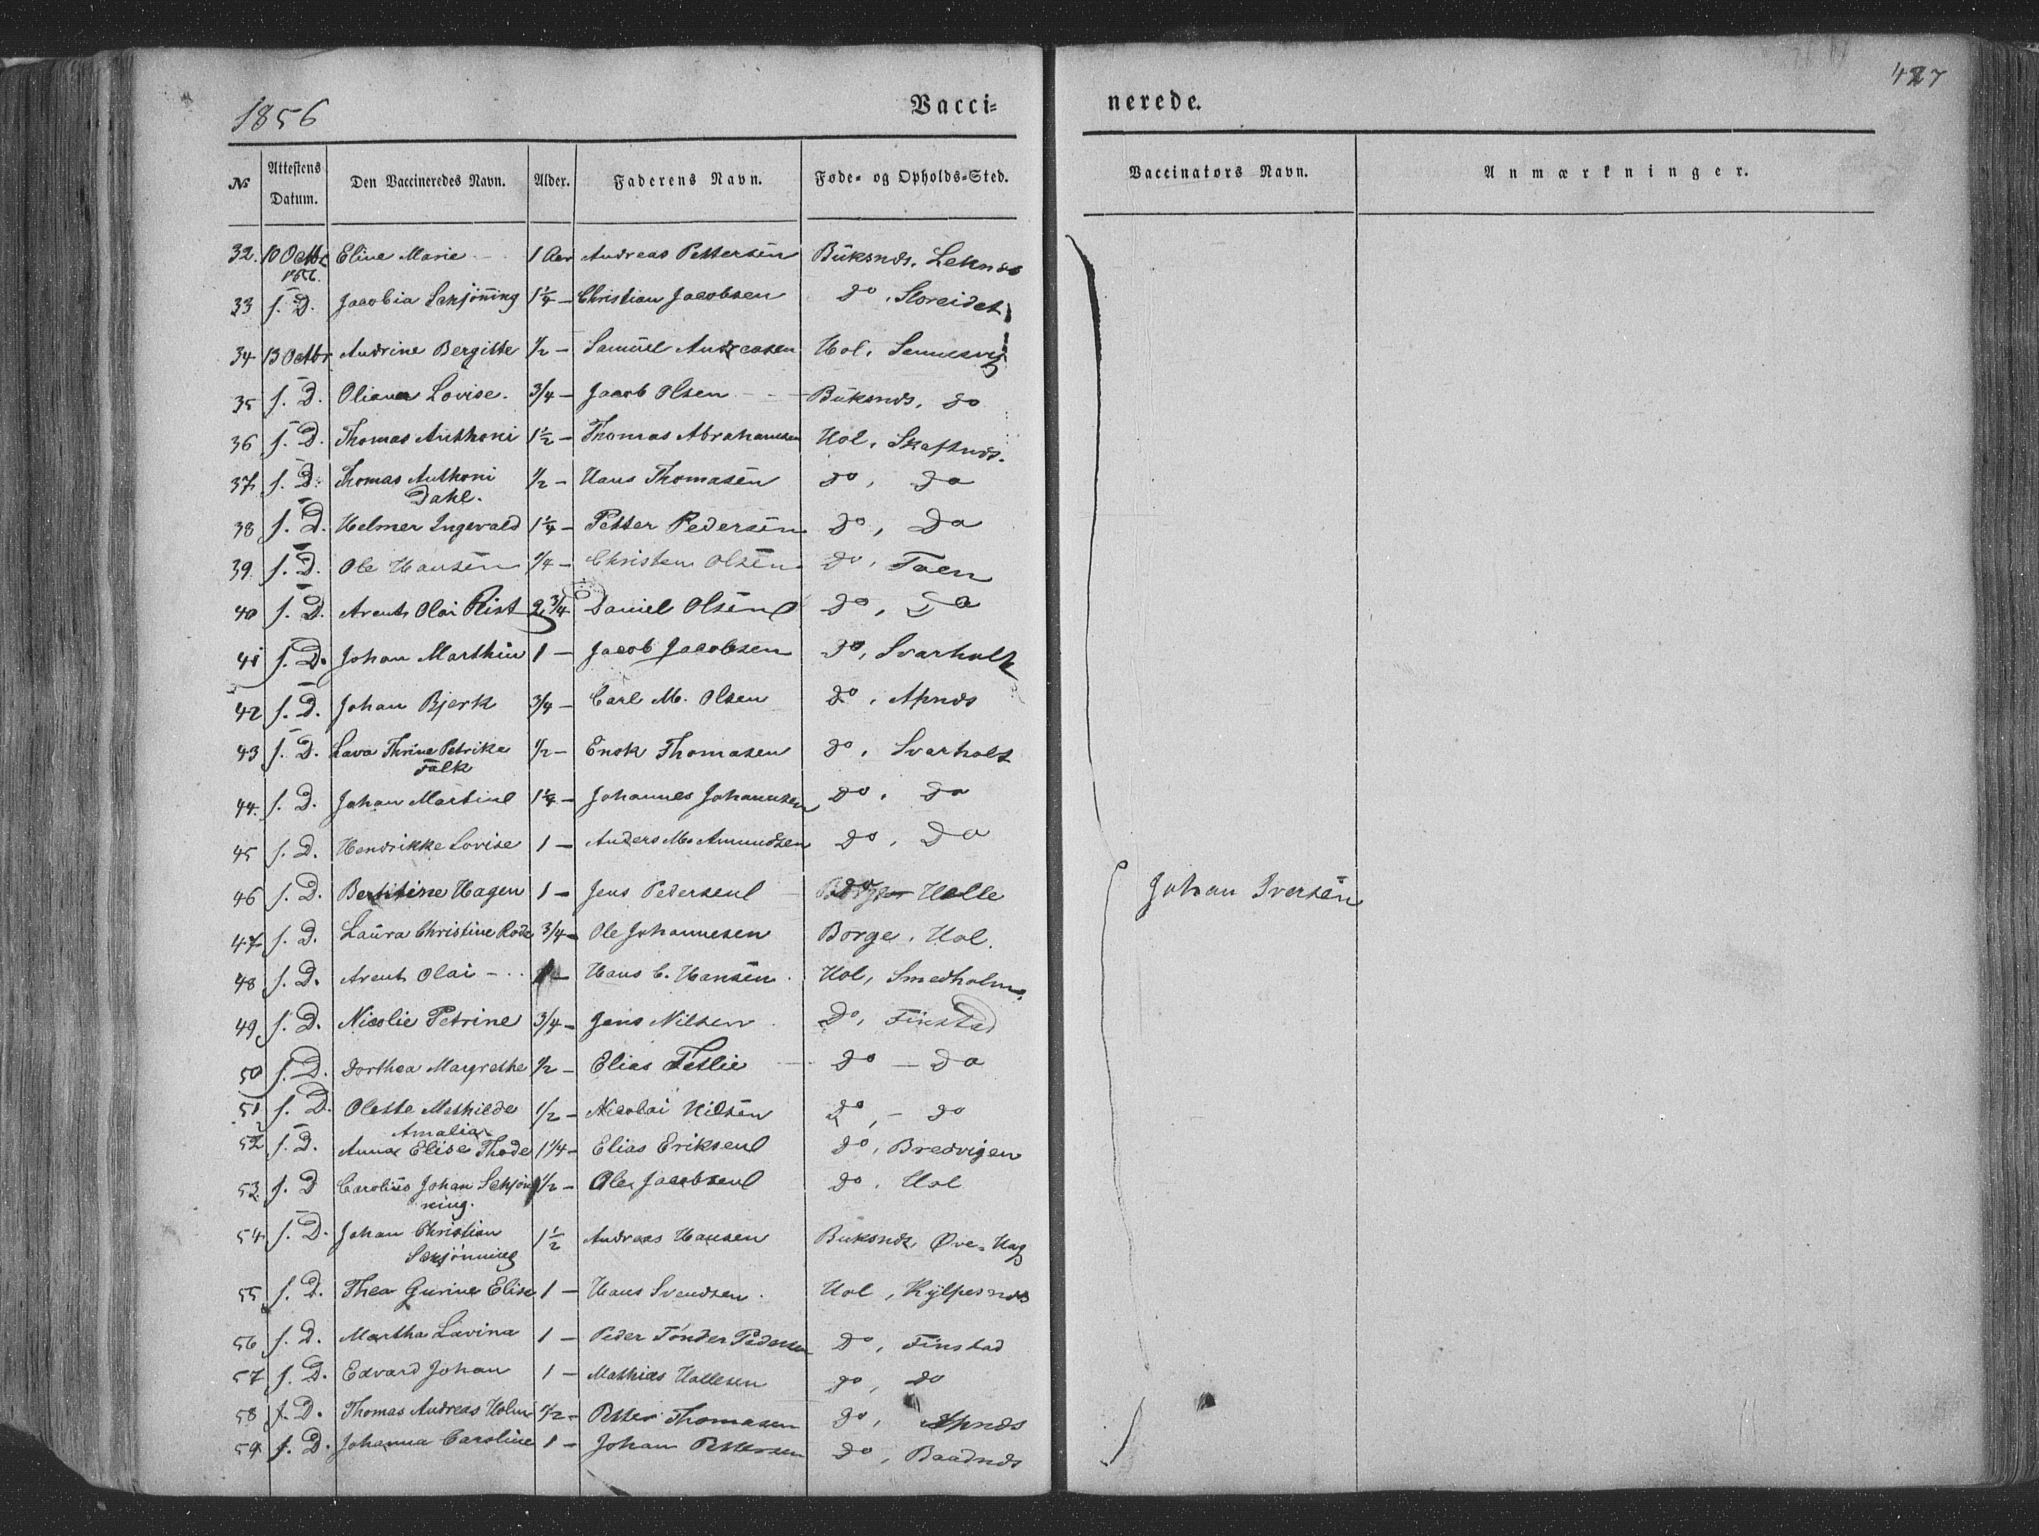 1856
Vacci- nerede.
427
No Attestens Datum. Den Vaccineredes Navn. Alder. Faderens Navn. Føde- og Opholds-Sted. Vaccinators Navn. Anmærkninger.
32. 10 Octbr 1856 Eline Marie 1 Aar Andreas Pettersen Buksnds. Leknes
33 s. D. Jacobia Schjöning 1¼ – Christian Jacobsen do, Storeidet
34 13 Octbr Andrine Bergitte 1/2 – Samuel Andreasen Hol, Sennesvig
35 s. D. Oliana Lovise. 3/4 – Jacob Olsen – – Buksnds, do
36 s. D. Thomas Anthoni 1½ – Thomas Abrahamsen Hol, Skaftnds.
37 s. D. Thomas Anthoni 1/2 – Hans Thomasen do, do
Dahl.
38 s. D. Helmer Ingevald 1¼ – Petter Pedersen do, Do
39. s. D. Ole Hansen 1/4 – Christen Olsen do, Foen
40 s. D. Arent Olai Rist 2 3/4 Daniel Olsen do, Do
41 s. D. Johan Marthin 1 – Jacob Jacobsen do, Svarholt
42 s. D. Johan Bjerk 3/4 – Carl M. Olsen do, Apnds
43 s. D. Lava Thrine Petrike 1/2 – Enok Thomasen do, Svarholt
Falk
44. s. D. Johan Martin 1¼ – Johannes Johannsen do, do
45 s. D. Hendrikke Lovise 1 – Anders M. Amundsen do, Do
46 s. D. Bertitine Hagen 1 – Jens Pedersen do Halle Johan Iversen
47 s. D. Laura Christine Rode 3/4 – Ole Johannesen Borge, Hol.
48 s. D. Arent Olai – .. 1 – Hans C. Hansen. Hol, Smedholm,
49 s. D. Nicolie Petrine 3/4 – Jens Nilsen Do, Finstad
50 s. D. Dorthea Margrethe 1/2 – Elias Fetlie do – Do
51 s. D. Olette Mathilde 1/2 – Nicolai Nilsen do, – do
Amalia
52 s. D. Anna Elise Thode 1 1/4 – Elias Eriksen do, Bredvigen
53 s. D Carolius Johan Schjön 1/2 – Ole Jacobsen do. Hol
ning.
54 s. D. Johan Christian 1½ Andreas Hansen Buksnds, Øvre Hag
Schjönning
55 s. D. Thea Gurine Elise 1 – Hans Svendsen. Hol, Kylpesnds
56 s. D. Martha Lavina 1 – Peder Tönder Pedersen Do, Finstad
57 s. D. Edvard Johan 1 – Mathias Hallesen do, do
58 s. D. Thomas Andreas Holm 1/2 – Petter Thomasen do, Apnds
59 s. D. Johanna Caroline 1 – Johan Pettersen do, Baadnds